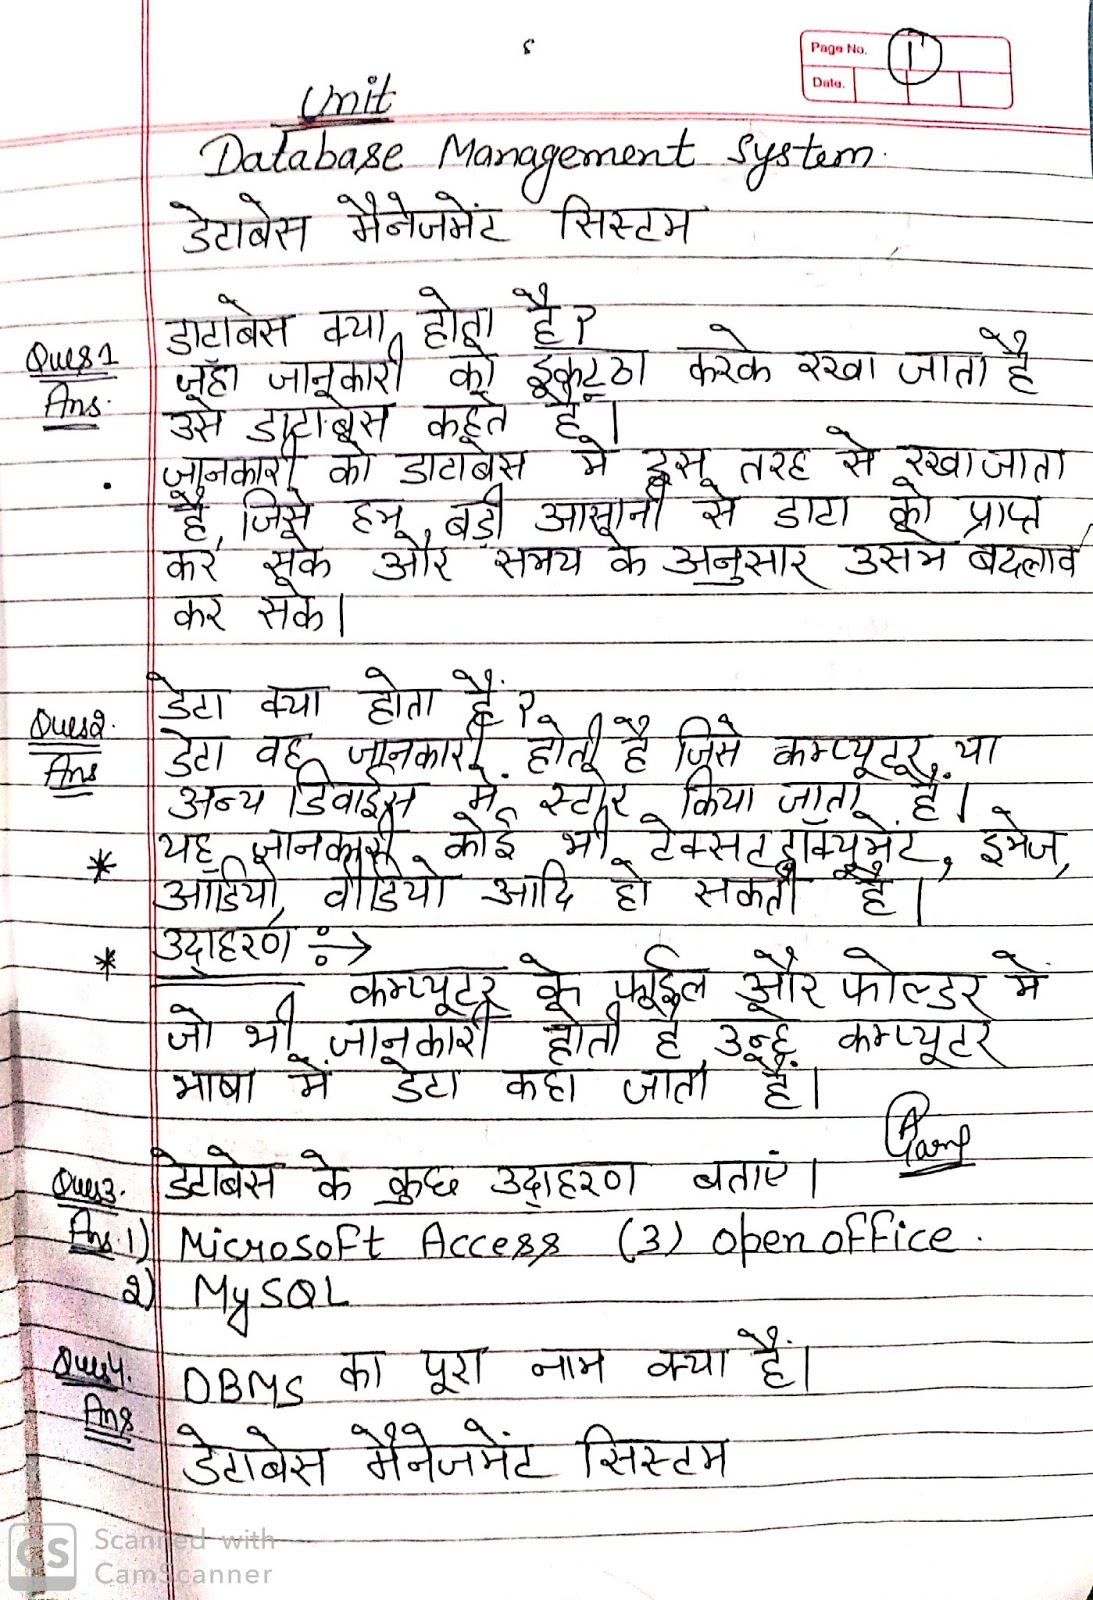 Page No. 1
Date.
Unit
Database Management System.
डेटाबेस मैनेजमेंट सिस्टम
Ques 1 डाटाबेस क्या होता है?
Ans. जहाँ जानकारी को इकट्ठा करके रखा जाता है
उसे डाटाबेस कहते है।
. जानकारी को डाटाबेस मे इस तरह से रखा जाता
है, जिसे हम बड़ी आसानी से डाटा को प्राप्त
कर सके और समय के अनुसार उसमे बदलाव
कर सके।
Ques2. डेटा क्या होता हैं?
Ans डेटा वह जानकारी होती है जिसे कम्प्यूटर या
अन्य डिवाईस में स्टोर किया जाता हैं।
* यह जानकारी कोई भी टेक्सट डॉक्यूमेंट, इमेज,
ऑडियो, वीडियो आदि हो सकती है।
* उदाहरण ÷→
कम्प्यूटर के फाईल और फोल्डर में
जो भी जानकारी होती है उन्हे कम्प्यूटर
भाषा में डेटा कहा जाता हैं।
Ques3. डेटाबेस के कुछ उदाहरण बताएं।
Ans. 1) Microsoft Access (3) openoffice.
2) MySQL
Ques4. DBMS का पूरा नाम क्या हैं।
Ans
डेटाबेस मैनेजमेंट सिस्टम
CS Scanned with
CamScanner